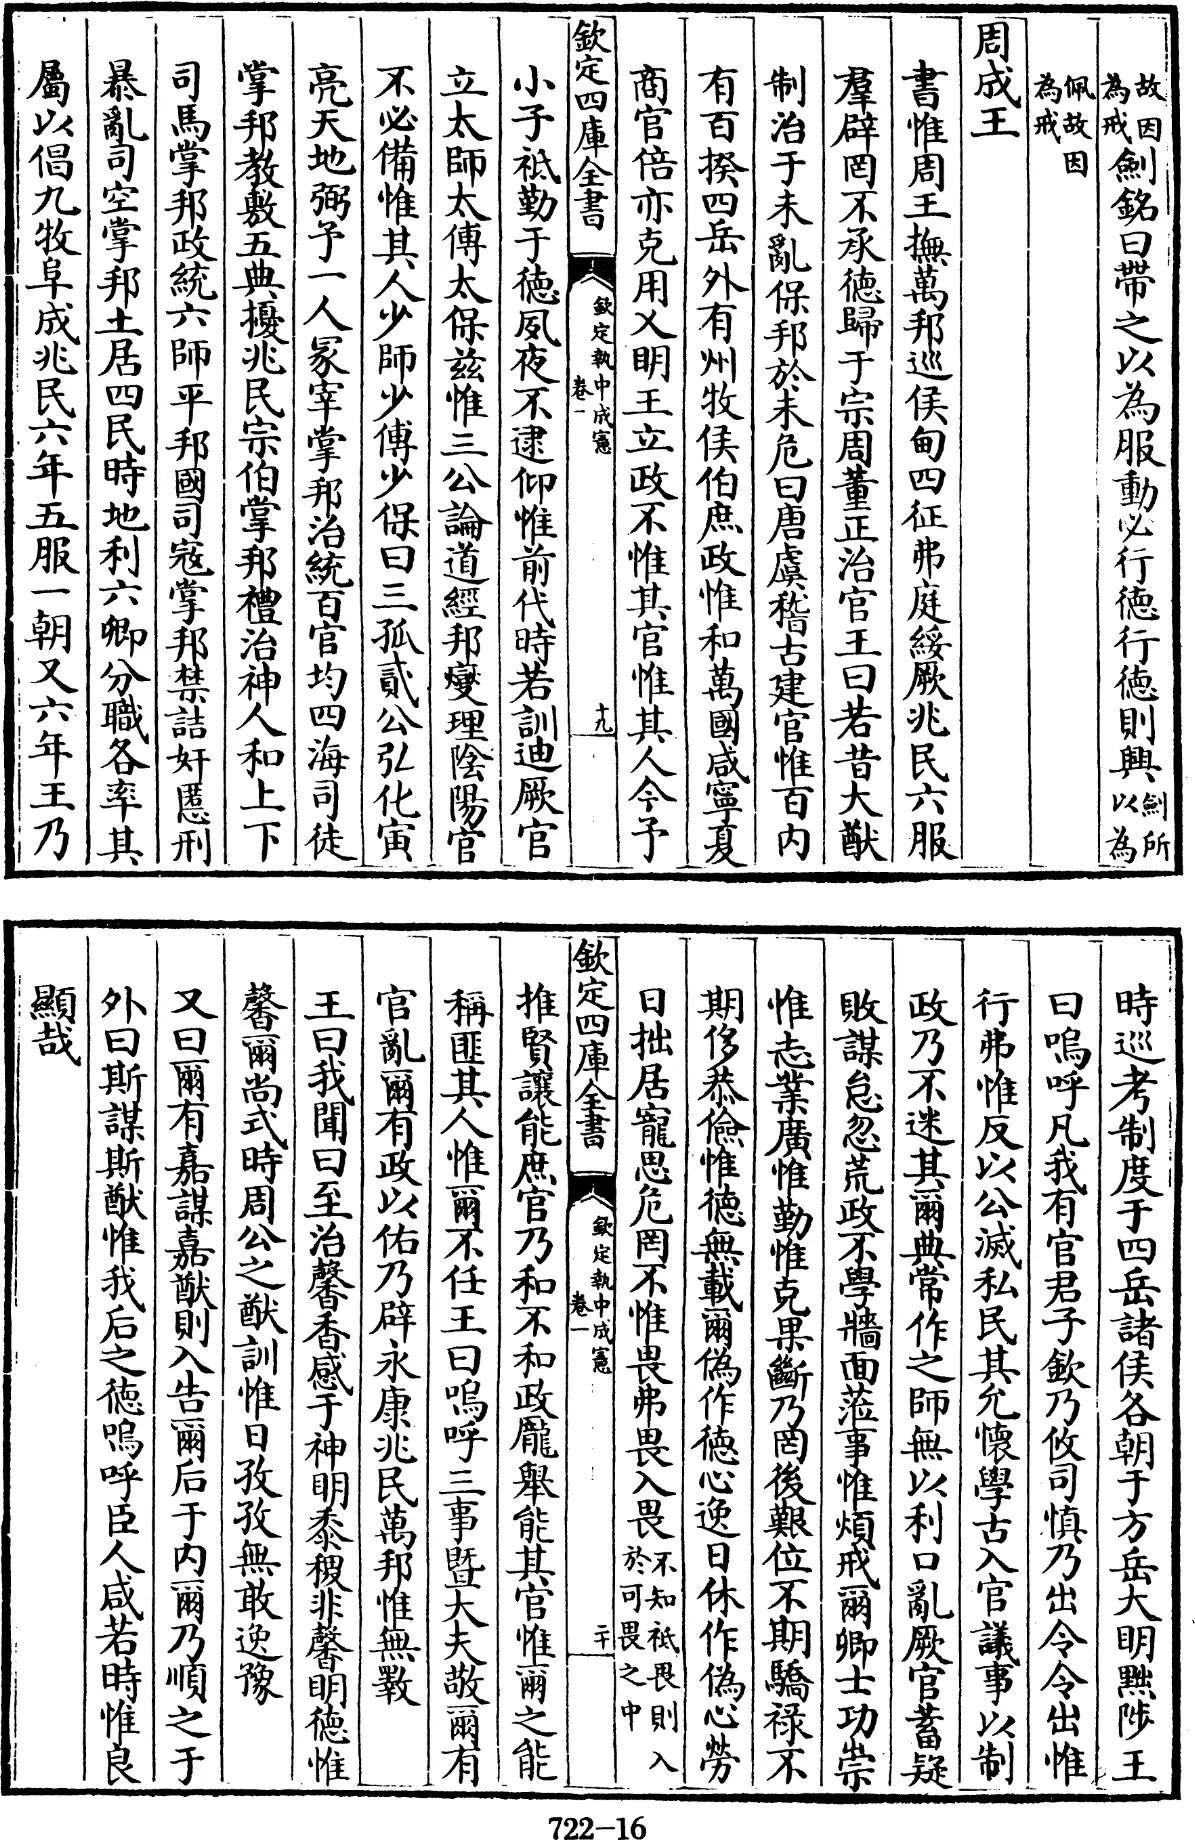 故因為戒劒銘曰帶之以為服動必行徳行徳則興劒所以為
佩故因為戒
周成王
書惟周王撫萬邦巡侯甸四征弗庭綏厥兆民六服
羣辟罔不承徳歸于宗周董正治官王曰若昔大猷
制治于未亂保邦於未危曰唐虞稽古建官惟百内
有百揆四岳外有州牧侯伯庶政惟和萬國咸寧夏
商官倍亦克用乂明王立政不惟其官惟其人今予
欽定四庫全書
欽定執中成憲
卷一
十九
小子祗勤于徳夙夜不逮仰惟前代時若訓迪厥官
立太師太傅太保兹惟三公論道經邦燮理陰陽官
不必備惟其人少師少傅少保曰三孤貳公弘化寅
亮天地弼予一人冢宰掌邦治統百官均四海司徒
掌邦教敷五典擾兆民宗伯掌邦禮治神人和上下
司馬掌邦政統六師平邦國司寇掌邦禁詰奸慝刑
暴亂司空掌邦土居四民時地利六卿分職各率其
屬以倡九牧阜成兆民六年五服一朝又六年王乃
時巡考制度于四岳諸侯各朝于方岳大明黜陟王
曰嗚呼凡我有官君子欽乃攸司慎乃出令令出惟
行弗惟反以公滅私民其允懷學古入官議事以制
政乃不迷其爾典常作之師無以利口亂厥官蓄疑
敗謀怠忽荒政不學牆面蒞事惟煩戒爾卿士功崇
惟志業廣惟勤惟克果斷乃罔後艱位不期驕祿不
期侈恭儉惟徳無載爾偽作徳心逸日休作偽心勞
日拙居寵思危罔不惟畏弗畏入畏不知祗畏則入於可畏之中
欽定四庫全書
欽定執中成憲
卷一
二十
推賢讓能庶官乃和不和政厖舉能其官惟爾之能
稱匪其人惟爾不任王曰嗚呼三事暨大夫敬爾有
官亂爾有政以佑乃辟永康兆民萬邦惟無斁
王曰我聞曰至治馨香感于神明黍稷非馨明徳惟
馨爾尚式時周公之猷訓惟日孜孜無敢逸豫
又曰爾有嘉謀嘉猷則入告爾后于内爾乃順之于
外曰斯謀斯猷惟我后之徳嗚呼臣人咸若時惟良
顯哉
722-16